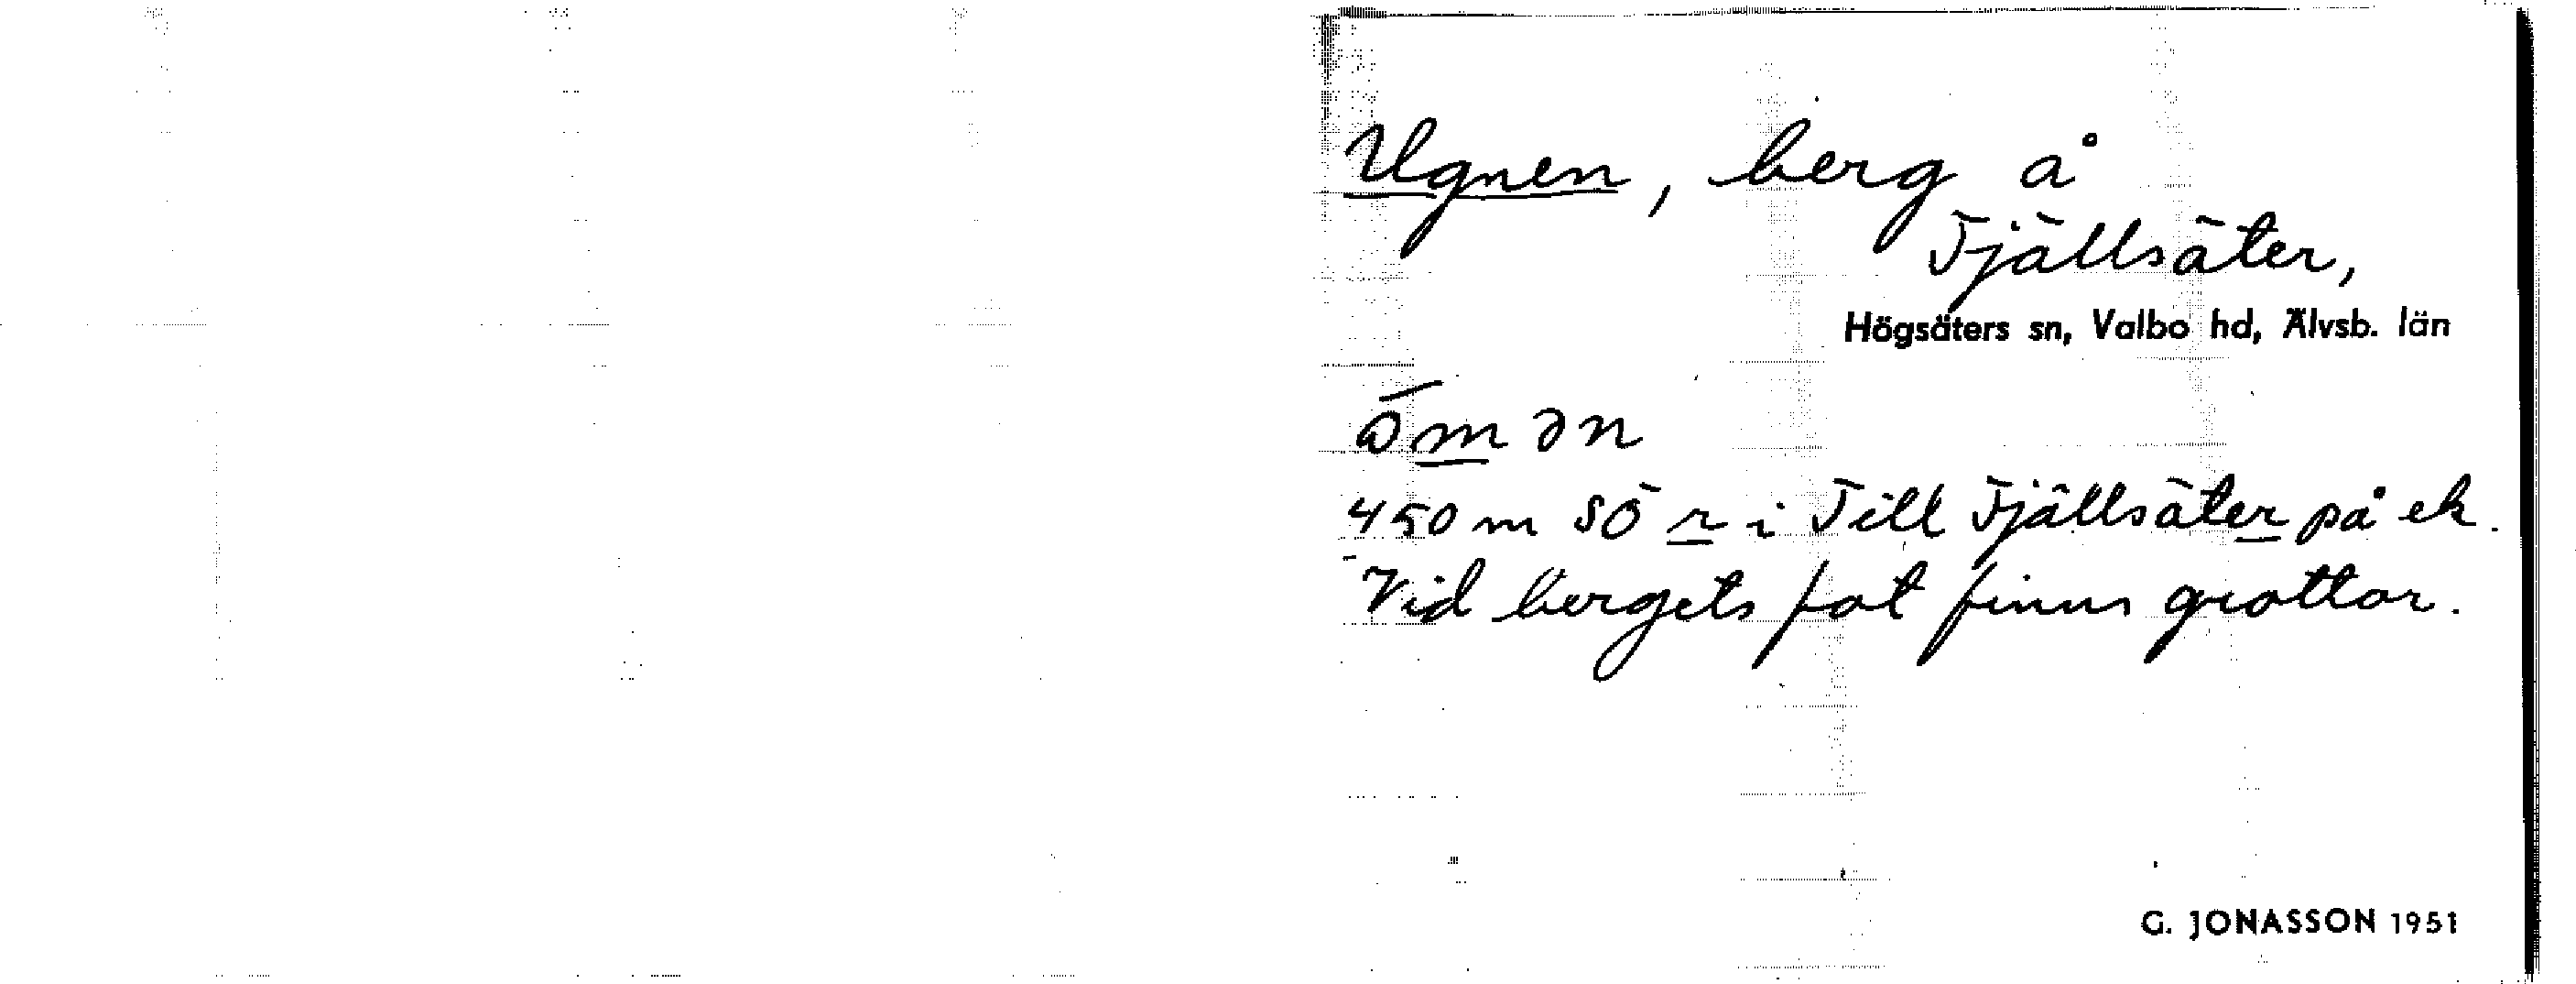 Ugnen, berg å
Fjällsäter,
Högsäters sn, Valbo hd, Älvsb. län
450 m SÖ r i Till Fjällsäter på ek.
Vid bergets fot finns grottor.
G. JONASSON 1951